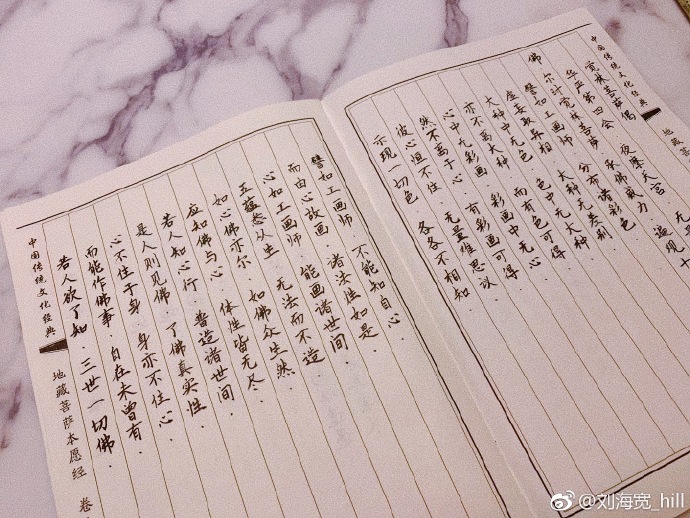 中国传统文化经典 地藏菩
觉林菩萨偈
华严第四会.夜摩天宫
尔时觉林菩萨 承佛威力 遍观十
佛
譬如工画师 分布诸彩色
虚妄取异相 大种无差别
大种中无色 色中无大种
亦不离大种 而有色可得
心中无彩画 彩画中无心
然不离于心 有彩画可得
彼心恒不住. 无量难思议
示现一切色 各各不相知.
譬如工画师 不能知自心.
而由心故画. 诸法性如是.
心如工画师. 能画诸世间.
五蕴悉从生 无法而不造
如心佛亦尔. 如佛众生然
应知佛与心 体性皆无尽.
若人知心行. 普造诸世间.
是人则见佛. 了佛真实性.
心不住于身 身亦不住心.
而能作佛事. 自在未曾有.
若人欲了知. 三世一切佛.
中国传统文化经典 地藏菩萨本愿经 卷
@刘海宽_hill